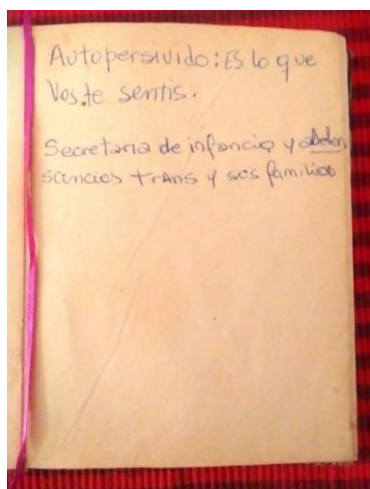 Autopersivido: Es lo que
Vos te sentis.
Secretaria de infancia y adolen
scencias trans y sus familias